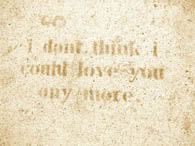 i dont think i
could love you
any more.